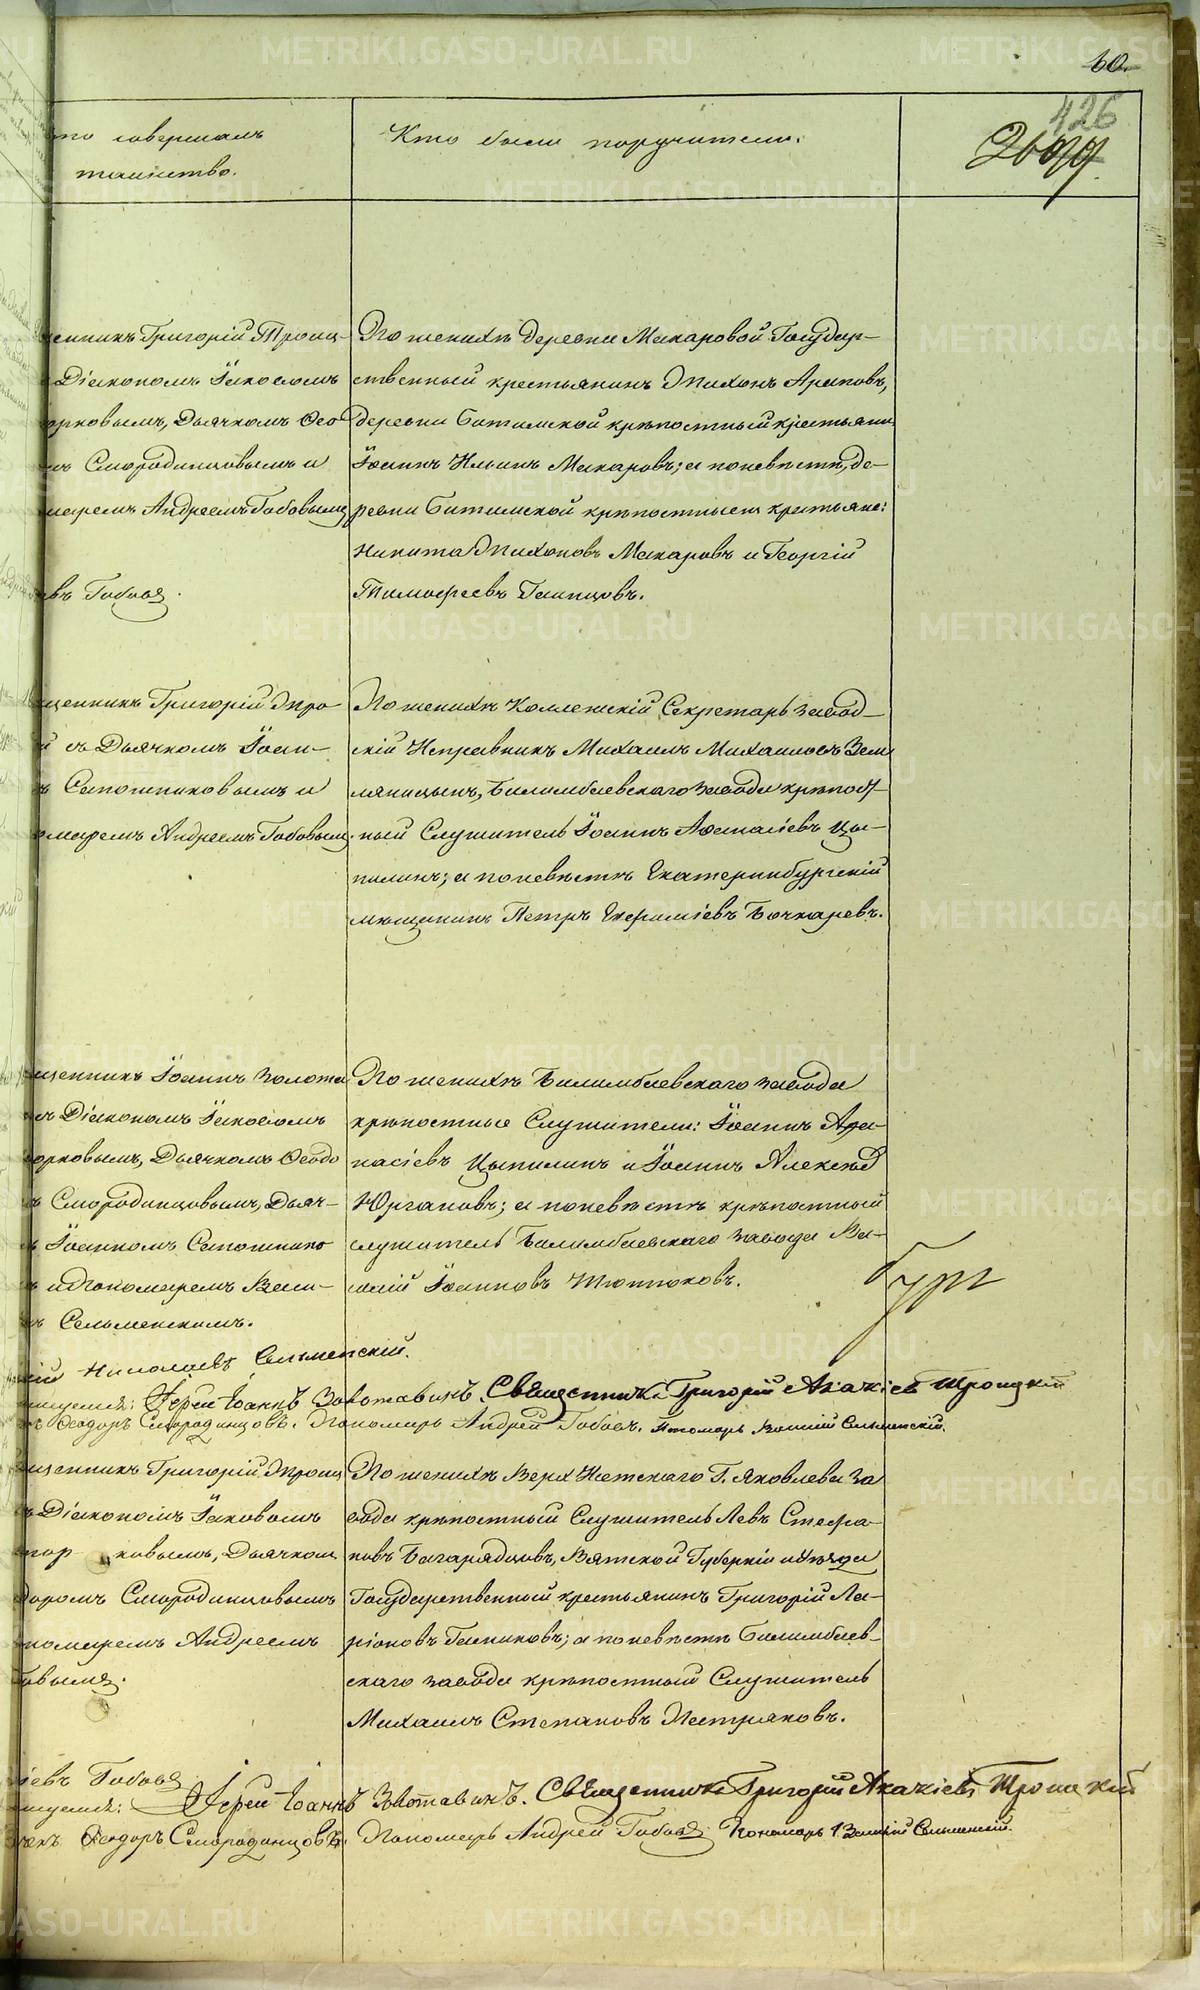 60.
426
Кто совершалъ
таинство.
Кто были поручители.
щенникъ Григорій Троиц-
Діакономъ Іаковомъ
орковымъ, Дьячкомъ Ѳео
мъ Смородинцовымъ и
номаремъ Андреемъ Бабовымъ
евъ Бабовъ.
По женихѣ деревни Макаровой Государ-
ственный крестьянинъ Тихонъ Араповъ,
деревни Битимской крѣпостный крестьянин
Іоаннъ Ильинъ Макаровъ; а по невѣстѣ, де-
ревни Битимской крѣпостные крестьяне:
Никита Тихоновъ Макаровъ и Георгій
Тимофеевъ Галицовъ.
щенникъ Григорій Тро
й съ Дьячкомъ Іоан-
ъ Сапожниковымъ и
номаремъ Андреемъ Бабовым
По женихѣ Коллежскій Секретарь Завод-
скій Исправникъ Михаилъ Михаиловъ Зем
ляницынъ, Билимбаевскаго Завода крѣпост-
ный Служитель Іоаннъ Афанасіевъ Цы-
пилинъ; а по невѣстѣ Екатеринбургскій
мѣщанинъ Петръ Евфиміевъ Бочкаревъ.
щенникъ Іоаннъ Золота
съ Діакономъ Іаковомъ
орковымъ, Дьячкомъ Ѳеодо
ъ Смородинцовымъ, Дьяч-
ъ Іоанномъ Сапожнико
ъ и Пономаремъ Васи-
ъ Сельменскимъ.
По женихѣ Билимбаевскаго завода
крѣпостные Служители: Іоаннъ Афа-
насіевъ Цыпилинъ и Іоаннъ Алексѣев
Юргановъ; а по невѣстѣ крѣпостный
служитель Билимбаевскаго завода Ва-
силій Іоанновъ Тютюковъ.
бург
лій Николаевъ Сельменскій.
Іерей Іоаннъ Золотавинъ. Священникъ Григорій Акакіевъ Троицкій
ъ Ѳеодоръ Смородинцовъ. Пономарь Андрей Бабовъ. Пономарь Василій Сельменскій.
щенникъ Григорій Троиц
ъ Діакономъ Іаковомъ
тор ковымъ, Дьячком
доромъ Смородинцовымъ
номаремъ Андреемъ
бовымъ.
По женихѣ Верх Исетскаго Г. Яковлева За
вода крѣпостный Служитель Левъ Стефа-
новъ Багарядцовъ, Вятской Губерніи и Уѣзда
Государственный крестьянинъ Григорій Ла-
ріоновъ Галиковъ; а по невѣстѣ Билимбаев-
скаго завода крѣпостный Служитель
Михаилъ Степановъ Пестряковъ.
іевъ Бабовъ
Іерей Іоаннъ Золотавинъ. Священникъ Григорій Акакіевъ Троицкій
чекъ Ѳеодоръ Смородинцовъ. Пономарь Андрей Бабовъ. Пономарь Василій Сельменскій.